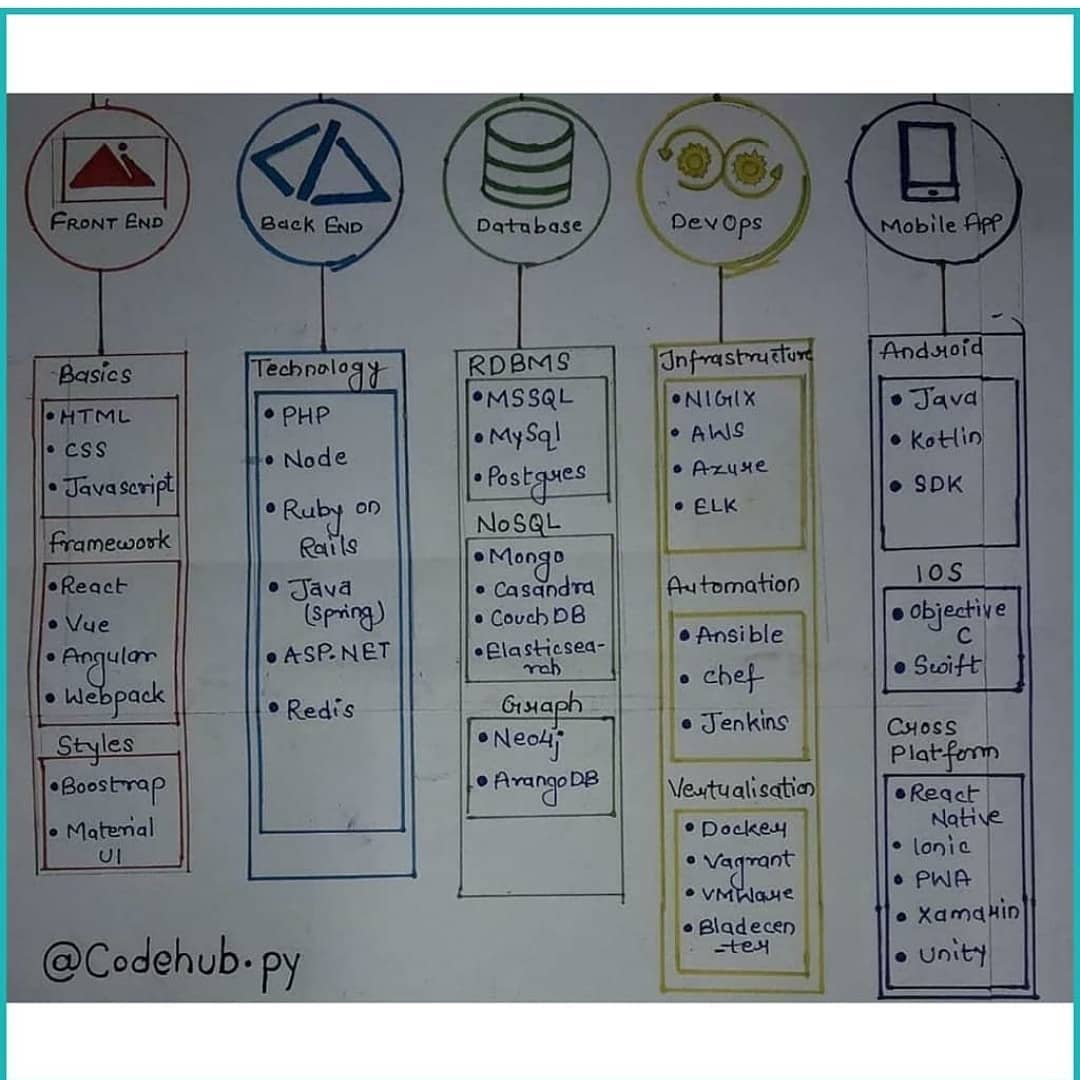 FRONT END
Basics
• HTML
• CSS
• Javascript
framework
• React
• Vue
• Angular
• Webpack
Styles
• Boostrap
• Material
UI
Back END
Technology
• PHP
• Node
• Ruby on
Rails
• Java
(spring)
• ASP.NET
• Redis
Database
RDBMS
• MSSQL
• MySql
• Postgres
NoSQL
• Mongo
• Casandra
• Couch DB
• Elasticsea-
rch
Graph
• Neo4j
• Arango DB
DevOps
Infrastructure
• NIGIX
• AWS
• Azure
• ELK
Automation
• Ansible
• chef
• Jenkins
Vertualisation
• Docker
• Vagrant
• VMWare
• Bladecen
-ter
Mobile App
Android
• Java
• Kotlin
• SDK
IOS
• Objective
C
• Swift
Cross
Platform
• React
Native
• Ionic
• PWA
• Xamarin
• Unity
@Codehub.py